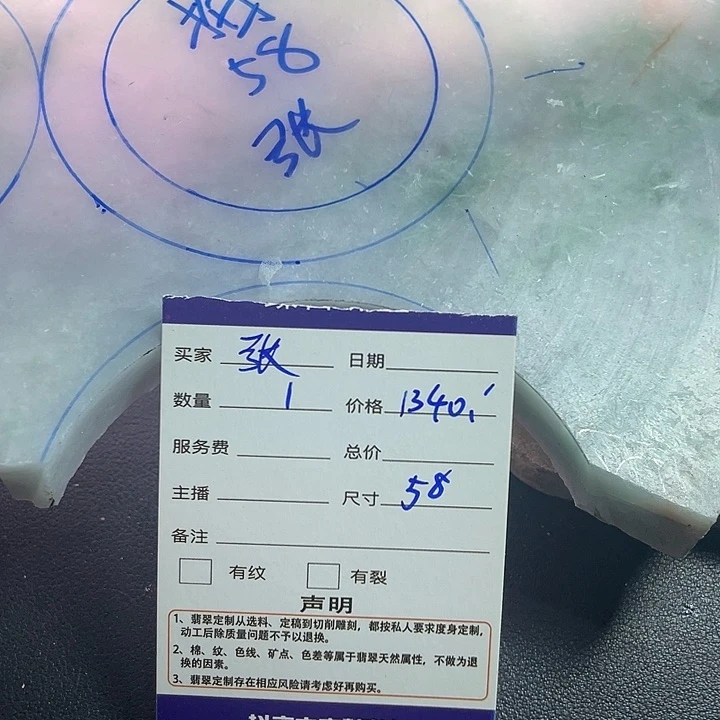 58
张
买家 张 日期
数量 1 价格 1340.
服务费 总价
主播 尺寸 58
备注
有纹 有裂
声明
1、翡翠定制从选料、定稿到切削雕刻，都按私人要求度身定制，
动工后除质量问题不予以退换。
2、棉、纹、色线、矿点、色差等属于翡翠天然属性，不做为退
换的因素。
3、翡翠定制存在相应风险请考虑好再购买。